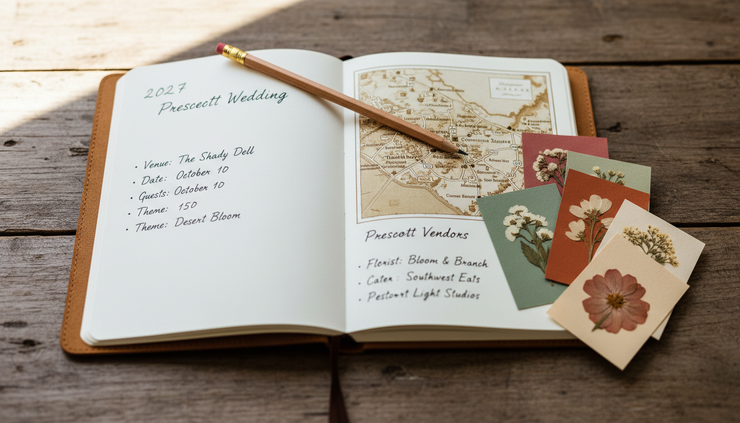 2027
Prescott Wedding
• Venue: The Shady Dell
• Date: October 10
• Guests: October 10
• Theme: 150
• Theme: Desert Bloom
Prescott Vendors
• Florist: Bloom & Branch
• Cater: Southwest Eats
• Pestowrt Light Studios